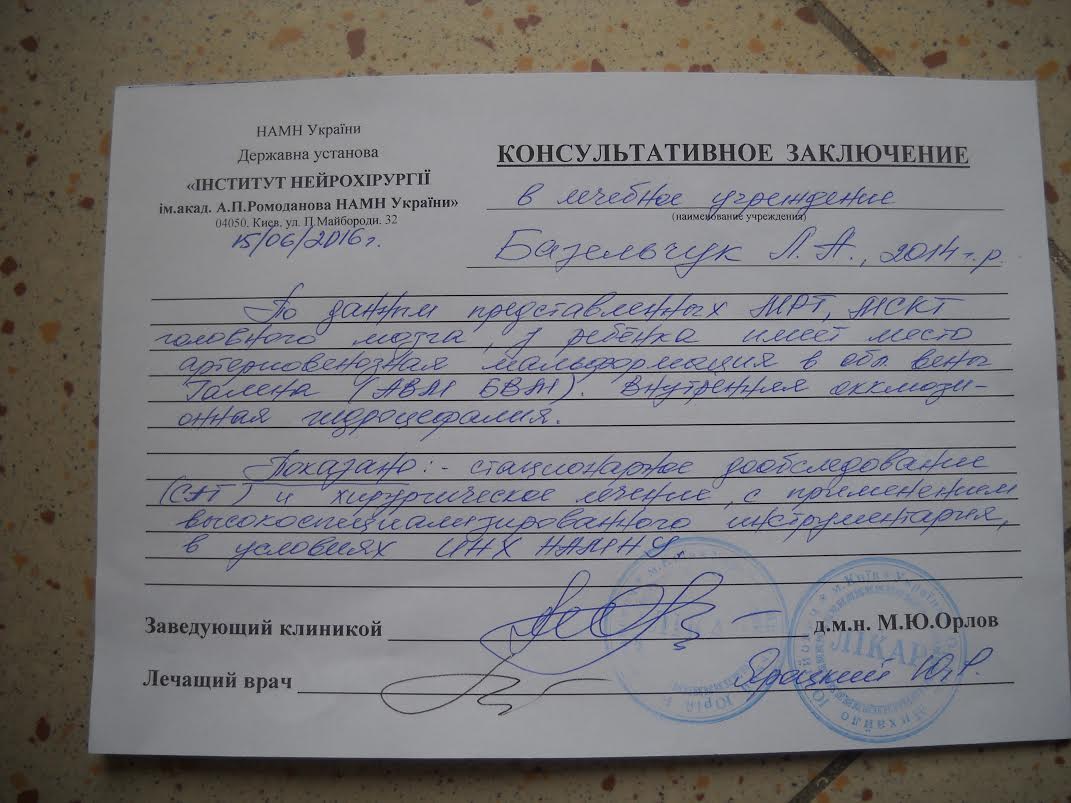 НАМН України
Державна установа
«ІНСТИТУТ НЕЙРОХІРУРГІЇ
ім.акад. А.П.Ромоданова НАМН України»
04050. Киев. ул. П.Майбороди. 32
15/06/2016г.
КОНСУЛЬТАТИВНОЕ ЗАКЛЮЧЕНИЕ
в лечебное учреждение
(наименование учреждения)
Базельчук Л. А., 2014 г.р.
По данным представленных МРТ, МСКТ
головного мозга, у ребёнка имеет место
артериовенозная мальформация в обл. вены
Галена (АВМ БВМ). Внутренняя окклюзи-
онная гидроцефалия.
Показано: - стационарное дообследование
(САГ) и хирургическое лечение, с применением
высокоспециализированного инструментария,
в условиях ИНХ НАМНУ.
Заведующий клиникой д.м.н. М.Ю.Орлов
Лечащий врач Яроцкий Ю.Р.
ЛІКАР
м.Київ Україна
Михайло
Юрій